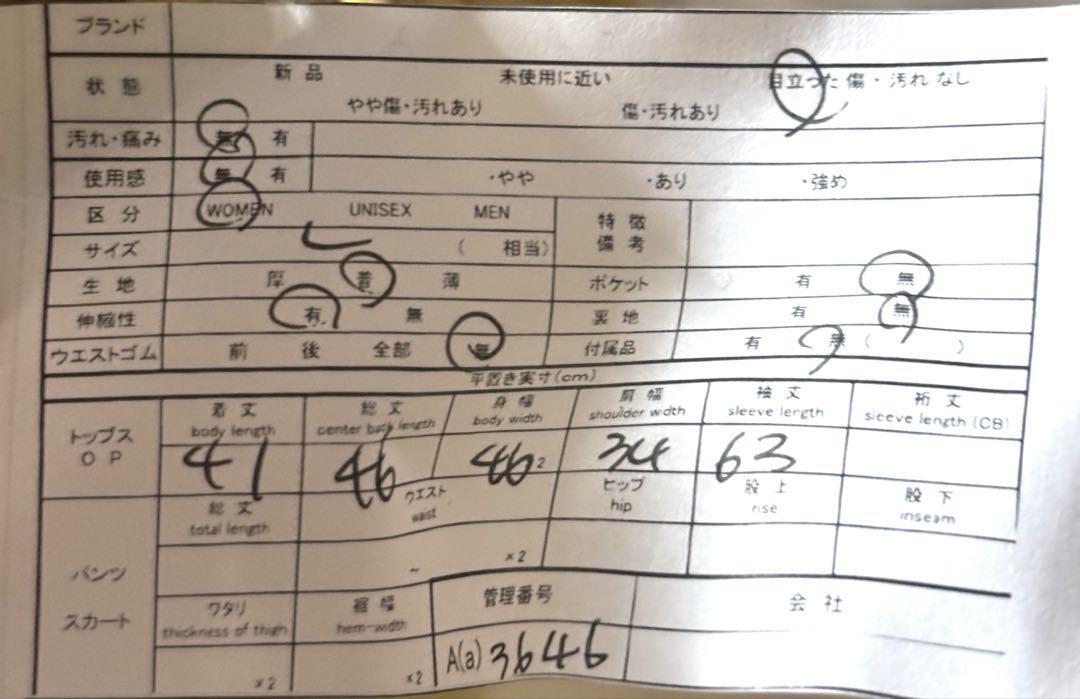 ブランド
状態 新品 未使用に近い 目立った傷・汚れなし
やや傷・汚れあり 傷・汚れあり
汚れ・痛み 無 有
使用感 無 有 ・やや ・あり ・強め
区分 WOMEN UNISEX MEN 特徴
備考
サイズ ( 相当)
生地 厚 普 薄 ポケット 有 無
伸縮性 有 無 裏地 有 無
ウエストゴム 前 後 全部 無 付属品 有 無 ( )
平置き実寸(cm)
トップス
OP
着丈 総丈 身幅 肩幅 袖丈 裄丈
body length center back length body width shoulder width sleeve length sleeve length (CB)
41 46 46 2 34 63
総丈 ウエスト ヒップ 股上 股下
total length waist hip rise inseam
パンツ ~ ×2
スカート
ワタリ 裾幅 管理番号 会社
thickness of thigh hem-width
×2 ×2 A(a) 3646